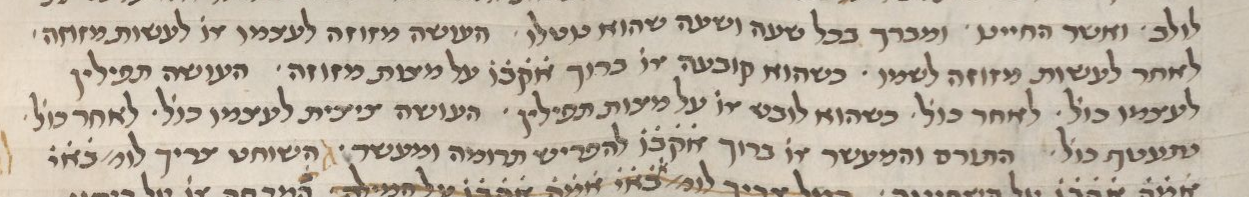 לולב · ואשר החייט · ומברך בכל שעה ושעה שהוא נוטלו · העושה מזוזה לעצמו או' לעשות מזוזה ·
לאחר לעשות מזוזה לשמו · כשהוא קובעה או' ברוך אקבו על מצות מזוזה · העושה תפילין
לעצמו כול · לאחר כול · כשהוא לובש או' על מצות תפילין · העושה ציצית לעצמו כול · לאחר כול ·
מתעטף כול התורם והמעשר או' ברוך אקבו להפריש תרומה ומעשר · השוחט צריך לומ' באי
אמה אקבו על השחיטה · צריך לומ' באי אמה אקבו על המילה